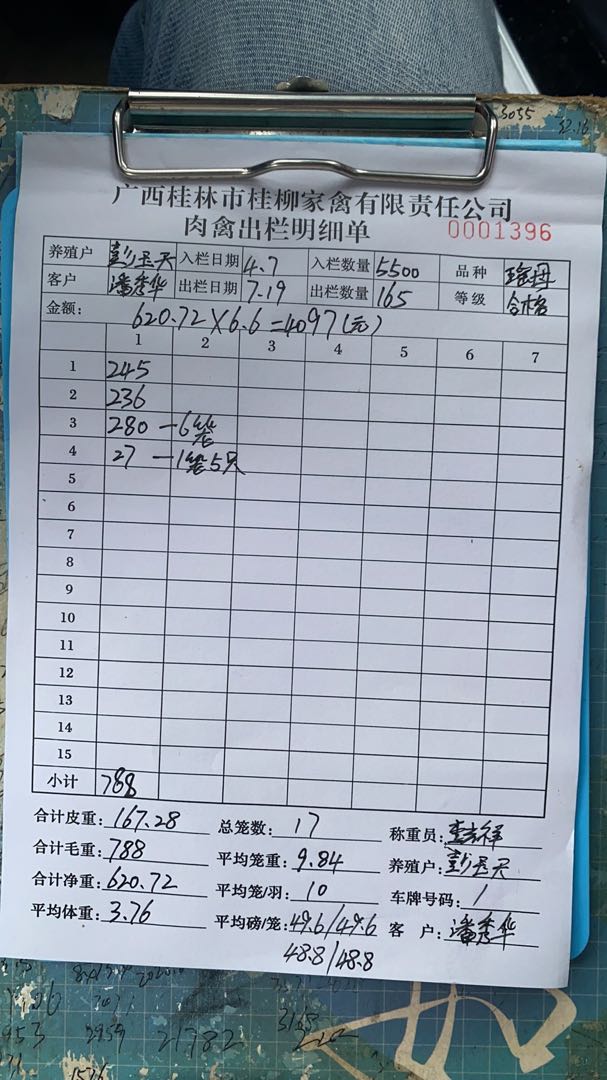 3055
32.16
广西桂林市桂柳家禽有限责任公司
肉禽出栏明细单 0001396
养殖户 入栏日期 4.7 入栏数量 5500 品种 瑶母
客户 潘秀华 出栏日期 7.19 出栏数量 165 等级 合格
金额: 620.72×6.6=4097(元)
1 2 3 4 5 6 7
1 245
2 236
3 280 —6笼
4 27 —1笼5只
5
6
7
8
9
10
11
12
13
14
15
小计 788
合计皮重: 167.28 总笼数: 17 称重员:
合计毛重: 788 平均笼重: 9.84 养殖户:
合计净重: 620.72 平均笼/羽: 10 车牌号码: /
平均体重: 3.76 平均磅/笼: 49.6/49.6 客 户: 潘秀华
48.8/48.8